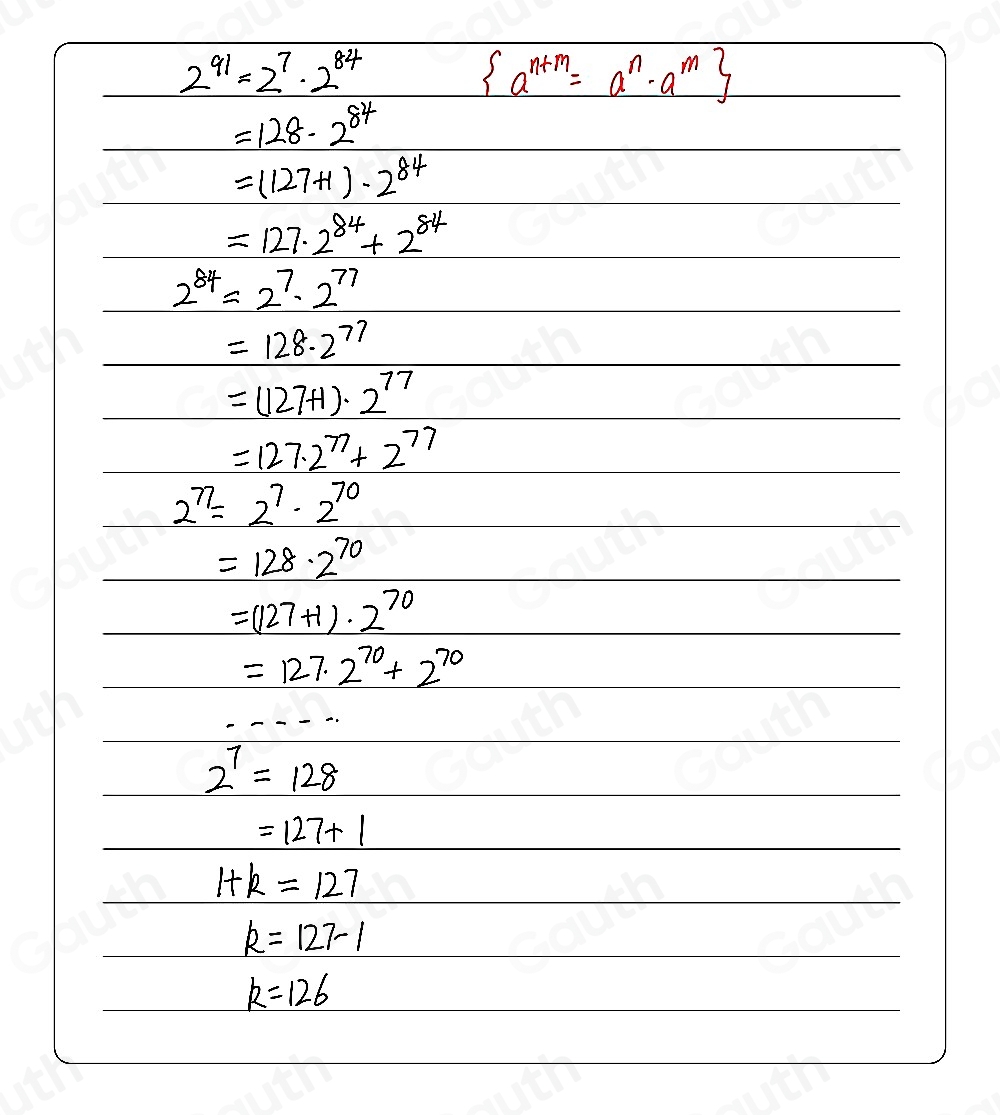 2^91 = 2^7 · 2^84 { a^n+m = a^n · a^m }
= 128 · 2^84
= (127+1) · 2^84
= 127 · 2^84 + 2^84
2^84 = 2^7 · 2^77
= 128 · 2^77
= (127+1) · 2^77
= 127 · 2^77 + 2^77
2^77 = 2^7 · 2^70
= 128 · 2^70
= (127+1) · 2^70
= 127 · 2^70 + 2^70
- - - - - ··
2^7 = 128
= 127 + 1
1+k = 127
k = 127-1
k = 126
Gauth